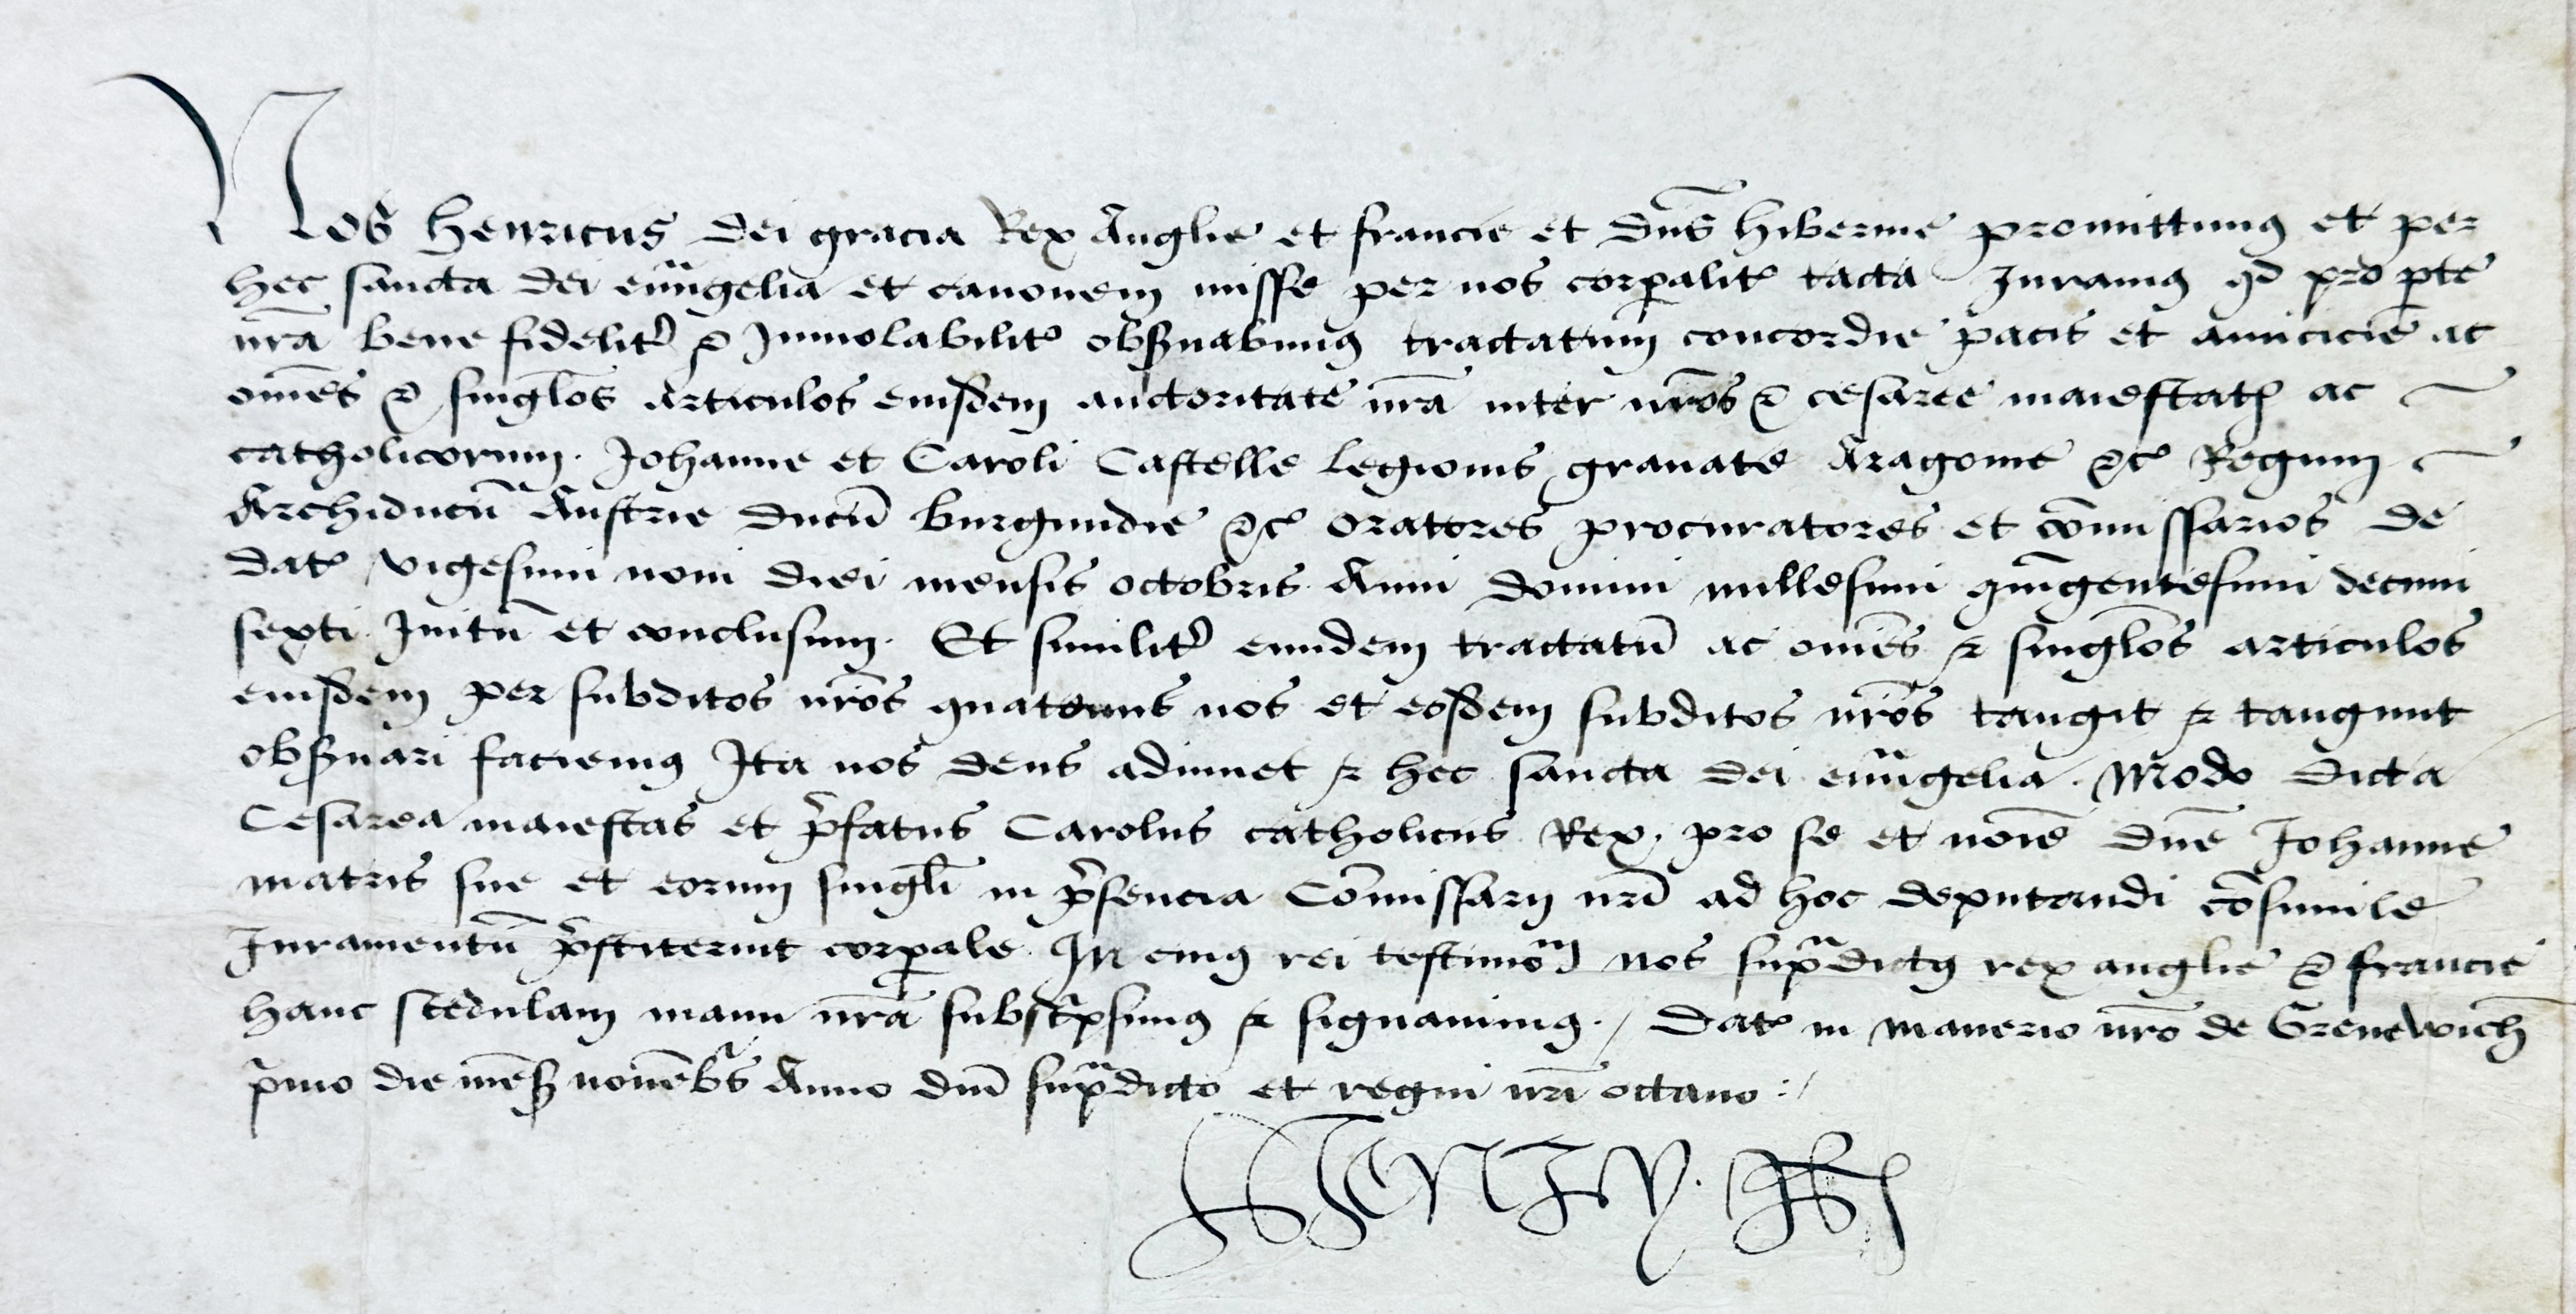 Nos henricus dei gracia Rex Anglie et francie et Dñs hibernie promittimꝰ et per
hec sancta dei euãgelia et canonem misse per nos corꝑalitʼ tacta Iuramꝰ qd pro ꝑte
nrã bene fidelitʼ ⁊ Inuiolabilitʼ obẜuabimꝰ tractatum concordie pacis et amicicie ac
omẽs ⁊ singl̃os Articulos eiusdem auctoritate nrã inter nrõs ⁊ cesaree maiestatꝭ ac
catholicorum. Johanne et Caroli Castelle legionis granate Aragonie ⁊cʼ Regum
Archiducũ Austrie ducũ burgundie ⁊cʼ oratores procuratores et cõmissarios de
datʼ vigesimi noni diei mensis octobris Anni domini millesimi quĩgentesimi decimi
sexti Initũ et conclusum. Et similitʼ eundem tractatũ ac omẽs ⁊ singl̃os articulos
eiusdem per subditos nrõs quatenus nos et eosdem subditos nrõs tangit ⁊ tangunt
obẜuari faciemꝰ Ita nos deus adiuuet ⁊ hec sancta dei euãgelia. Modo dicta
Cesarea maiestas et p̃fatus Carolus catholicus Rex, pro se et noĩe dñe Johanne
matris sue et eorum singl̃i in p̃sencia Cõmissarij nrĩ ad hoc deputandi cõsimile
Iuramentũ p̃stiterint corꝑale. In cuiꝰ rei testimoĩu nos sup̃dictꝰ rex anglie ⁊ francie
hanc scedulam manu nrã subsc̃psimꝰ ⁊ signauimꝰ. / Datʼ in manerio nrõ de Grenewich
p̃mo die mẽẜ nouẽb̃s Anno dñi sup̃dicto et regni nrĩ octauo :/
Henry. Rex